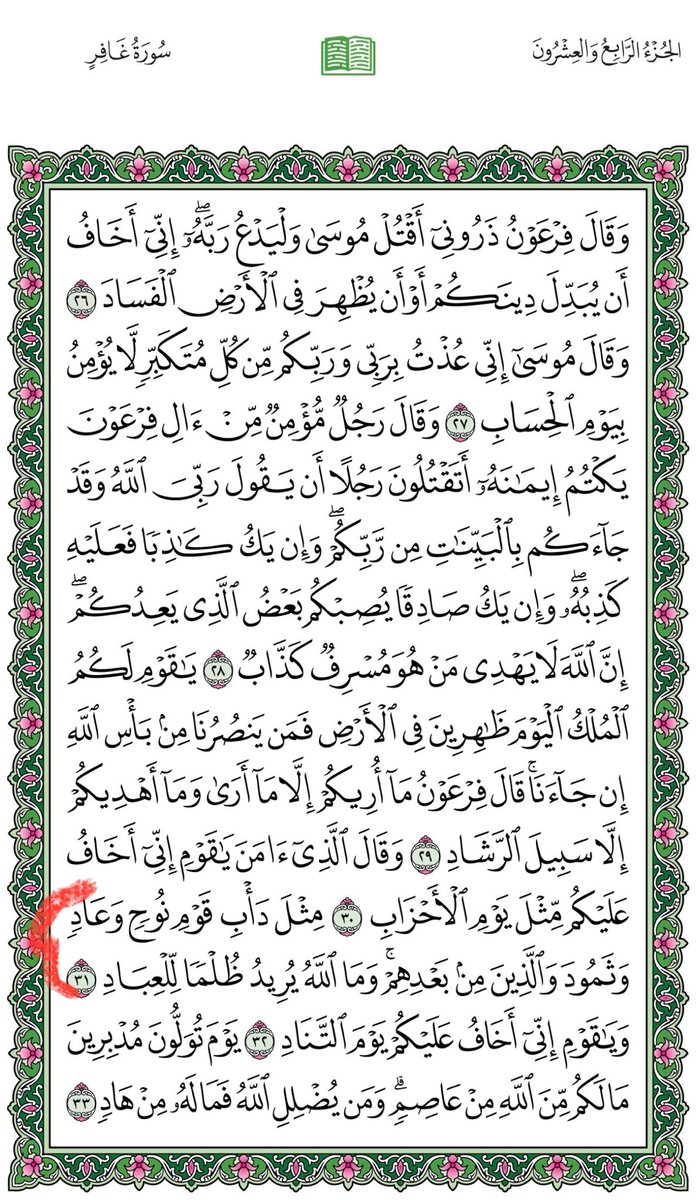 الجُزْءُ الرَّابِعُ وَالعِشْرُونَ
سُورَةُ غَافِرٍ
وَقَالَ فِرْعَوْنُ ذَرُونِىٓ أَقْتُلْ مُوسَىٰ وَلْيَدْعُ رَبَّهُۥٓۖ إِنِّىٓ أَخَافُ
أَن يُبَدِّلَ دِينَكُمْ أَوْ أَن يُظْهِرَ فِى ٱلْأَرْضِ ٱلْفَسَادَ ٢٦
وَقَالَ مُوسَىٰٓ إِنِّى عُذْتُ بِرَبِّى وَرَبِّكُم مِّن كُلِّ مُتَكَبِّرٍ لَّا يُؤْمِنُ
بِيَوْمِ ٱلْحِسَابِ ٢٧ وَقَالَ رَجُلٌ مُّؤْمِنٌ مِّنْ ءَالِ فِرْعَوْنَ
يَكْتُمُ إِيمَٰنَهُۥٓ أَتَقْتُلُونَ رَجُلًا أَن يَقُولَ رَبِّىَ ٱللَّهُ وَقَدْ
جَآءَكُم بِٱلْبَيِّنَٰتِ مِن رَّبِّكُمْۖ وَإِن يَكُ كَٰذِبًا فَعَلَيْهِ
كَذِبُهُۥۖ وَإِن يَكُ صَادِقًا يُصِبْكُم بَعْضُ ٱلَّذِى يَعِدُكُمْۖ
إِنَّ ٱللَّهَ لَا يَهْدِى مَنْ هُوَ مُسْرِفٌ كَذَّابٌ ٢٨ يَٰقَوْمِ لَكُمُ
ٱلْمُلْكُ ٱلْيَوْمَ ظَٰهِرِينَ فِى ٱلْأَرْضِ فَمَن يَنصُرُنَا مِنۢ بَأْسِ ٱللَّهِ
إِن جَآءَنَاۚ قَالَ فِرْعَوْنُ مَآ أُرِيكُمْ إِلَّا مَآ أَرَىٰ وَمَآ أَهْدِيكُمْ
إِلَّا سَبِيلَ ٱلرَّشَادِ ٢٩ وَقَالَ ٱلَّذِىٓ ءَامَنَ يَٰقَوْمِ إِنِّىٓ أَخَافُ
عَلَيْكُم مِّثْلَ يَوْمِ ٱلْأَحْزَابِ ٣٠ مِثْلَ دَأْبِ قَوْمِ نُوحٍ وَعَادٍ
وَثَمُودَ وَٱلَّذِينَ مِنۢ بَعْدِهِمْۚ وَمَا ٱللَّهُ يُرِيدُ ظُلْمًا لِّلْعِبَادِ ٣١
وَيَٰقَوْمِ إِنِّىٓ أَخَافُ عَلَيْكُمْ يَوْمَ ٱلتَّنَادِ ٣٢ يَوْمَ تُوَلُّونَ مُدْبِرِينَ
مَا لَكُم مِّنَ ٱللَّهِ مِنْ عَاصِمٍۗ وَمَن يُضْلِلِ ٱللَّهُ فَمَا لَهُۥ مِنْ هَادٍ ٣٣